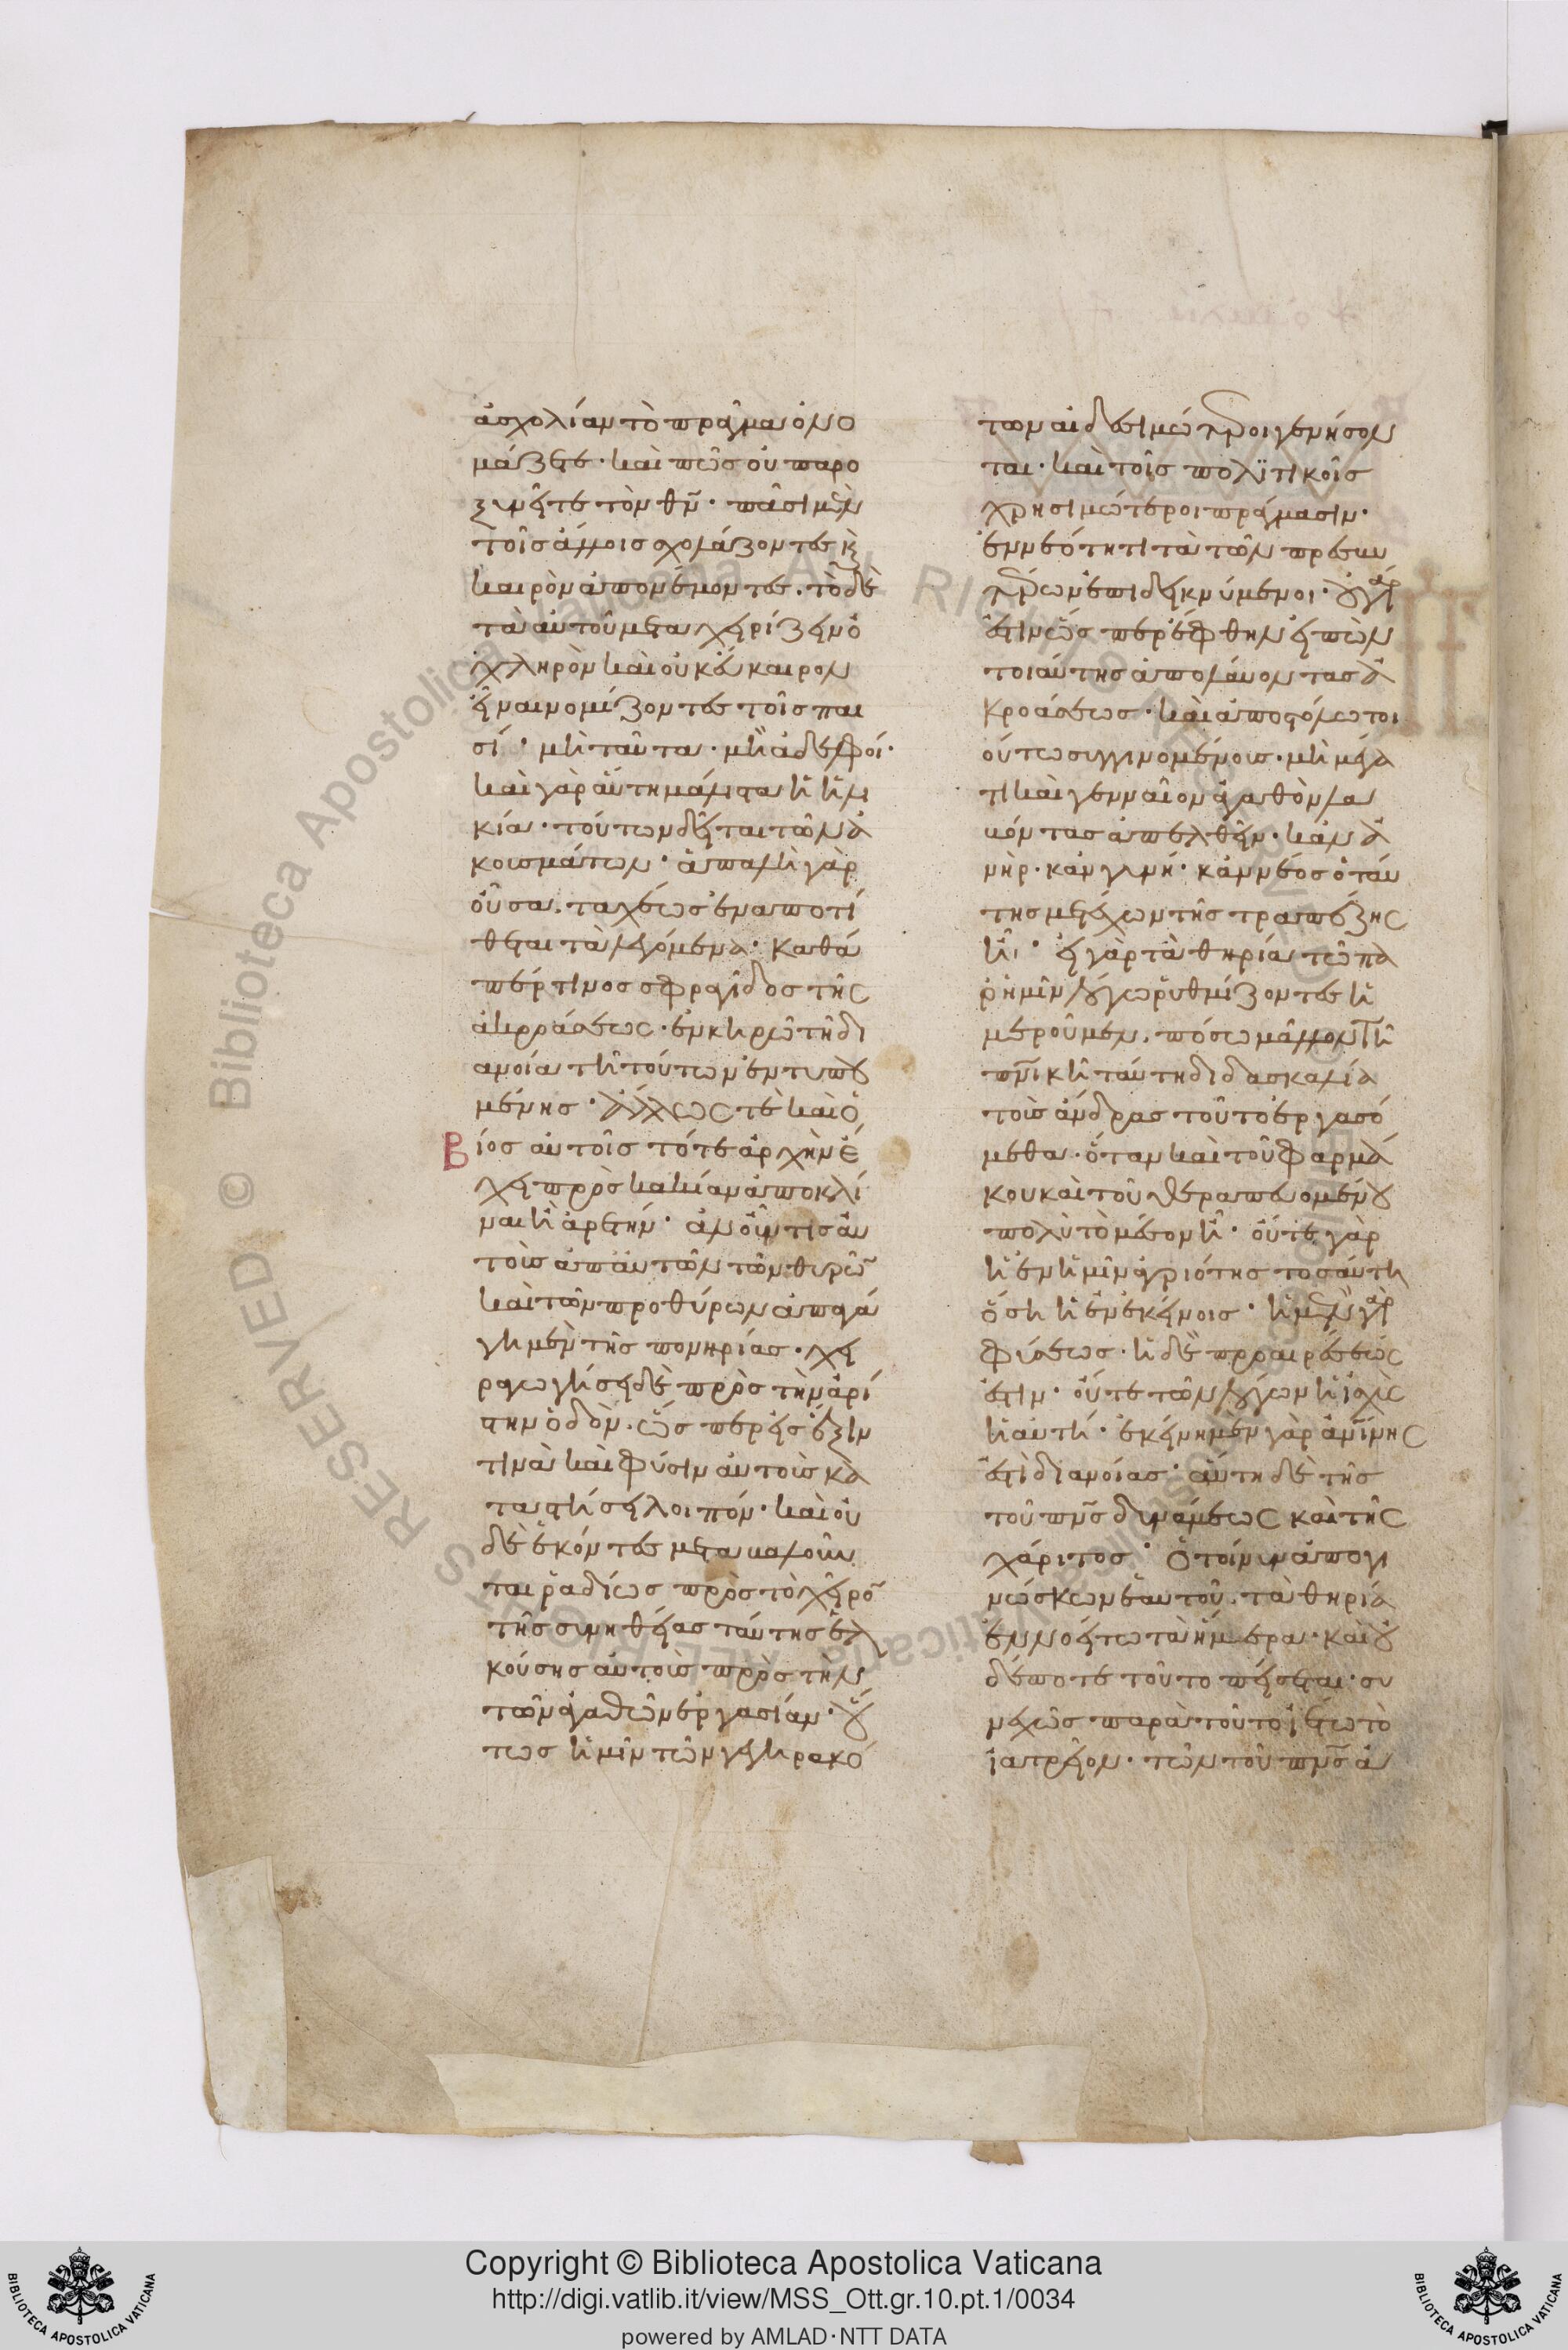 ἀσχολίαν τὸ πρᾶγμα ὀνο
μάζετε· καὶ πῶς οὐ παρο
ξυνεῖτε τὸν θν̄· πᾶσι μὲν
τοῖς ἄλλοις σχολάζοντες κ̀
καιρὸν ἀπονέμοντες. τὸ δὲ
τὰ αὐτοῦ μεταχειρίζειν ὀ
χληρὸν καὶ οὐκ εὔκαιρον
εἶναι νομίζοντες τοῖς παι
σί· μὴ ταῦτα· μὴ ἀδελφοί·
καὶ γὰρ αὕτη μάλιστα ἡ ἡλι
κία· τούτων δεῖται τῶν ἀ
κουσμάτων· ἁπαλὴ γὰρ
οὖσα. ταχέως ἐναποτί
θεται τὰ λεγόμενα· καθά
περ τινος σφραγῖδος τῆς
ἀκροάσεως· ἐν κηρῷ τῇ δι
ανοία τῆ τούτων ἐντυπου
μένης· ἄλλως τὲ καὶ ὁ
βίος αὐτοῖς τότε ἀρχὴν ἔ
χει πρὸς κακίαν ἀποκλί
ναι ἢ ἀρετήν· ἂν οὖν τις αὐ
τοὺς ἀπ' αὐτῶν τῶν θυρῶ
καὶ τῶν προθύρων ἀπαγά
γη μὲν τῆς πονηρίας. χει
ραγωγήσει δὲ πρὸς τὴν ἀρί
στην ὁδὸν. ὥσπερ εἰς ἕξιν
τινὰ καὶ φύσιν αὐτοὺς κα
ταστήσει λοιπόν· καὶ οὐ
δὲ ἑκόντες μεταβαλοῦν
ται ῥαδίως πρὸς τὸ χεῖρο
τῆς συνηθείας ταύτης ἑλ
κούσης αὐτοὺς πρὸς τὴν
τῶν ἀγαθῶν ἐργασίαν· οὕ
τως ἡμῖν τῶν γεγηρακό
των αἰδεσιμώτεροι γενήσον
ται· καὶ τοῖς πολϊτικοῖς
χρησιμώτεροι πράγμασιν·
ἐν νεότητι τὰ τῶν πρεσβυ
τέρων ἐπιδεικνύμενοι· οὐ γάρ
ἐστιν ὥσπερ ἔφθην εἰπὼν
τοιαύτης ἀπολαύοντας ἀ
κροάσεως· καὶ ἀποστόλω τοι
ούτω συγγινομένους· μὴ μέγα
τι καὶ γενναῖον ἀγαθὸν λα
βόντας ἀπελθεῖν· κἂν ἀ
νὴρ· κἂν γυνή· κἂν νέος ὁ ταύ
της μετέχων τῆς τραπέζης
ἦ· εἰ γὰρ τὰ θηρία τῶ πα
ρ' ἡμῖν λόγω ῥυθμίζοντες ἡ
μεροῦμεν. πόσω μᾶλλον τῆ
πνικῆ ταύτη διδασκαλία
τοὺς ἄνδρας τοῦτο ἐργασό
μεθα. ὅταν καὶ τοῦ φαρμά
κου καὶ τοῦ θεραπευομένου
πολὺ τὸ μέσον ἦ· οὔτε γὰρ
ἡ ἐν ἡμῖν ἀγριότης τοσαύτη
ὅση ἡ ἐν ἐκείνοις· ἡ μὲν γάρ
φύσεως· ἡ δὲ προαιρέσεώς
ἐστιν· οὔτε τῶν λόγων ἡ ἰσχὺς
ἡ αὐτή· ἐκείνη μὲν γὰρ ἀν̄ίνης
ἐστὶ διανοίας· αὕτη δὲ τῆς
τοῦ πνς̄ δυνάμεως καὶ τῆς
χάριτος· ὁ τοίνυν ἀπογι
νώσκων ἑαυτοῦ. τὰ θηρία
ἐννοείτω τὰ ἥμερα. καὶ οὐ
δέποτε τοῦτο πείσεται. συ
νεχῶς παρὰ τοῦτο ἴστω τὸ
ἰατρεῖον. τῶν τοῦ πνς̄ ἀ
Copyright © Biblioteca Apostolica Vaticana
http://digi.vatlib.it/view/MSS_Ott.gr.10.pt.1/0034
powered by AMLAD·NTT DATA
BIBLIOTECA APOSTOLICA VATICANA
BIBLIOTECA APOSTOLICA VATICANA